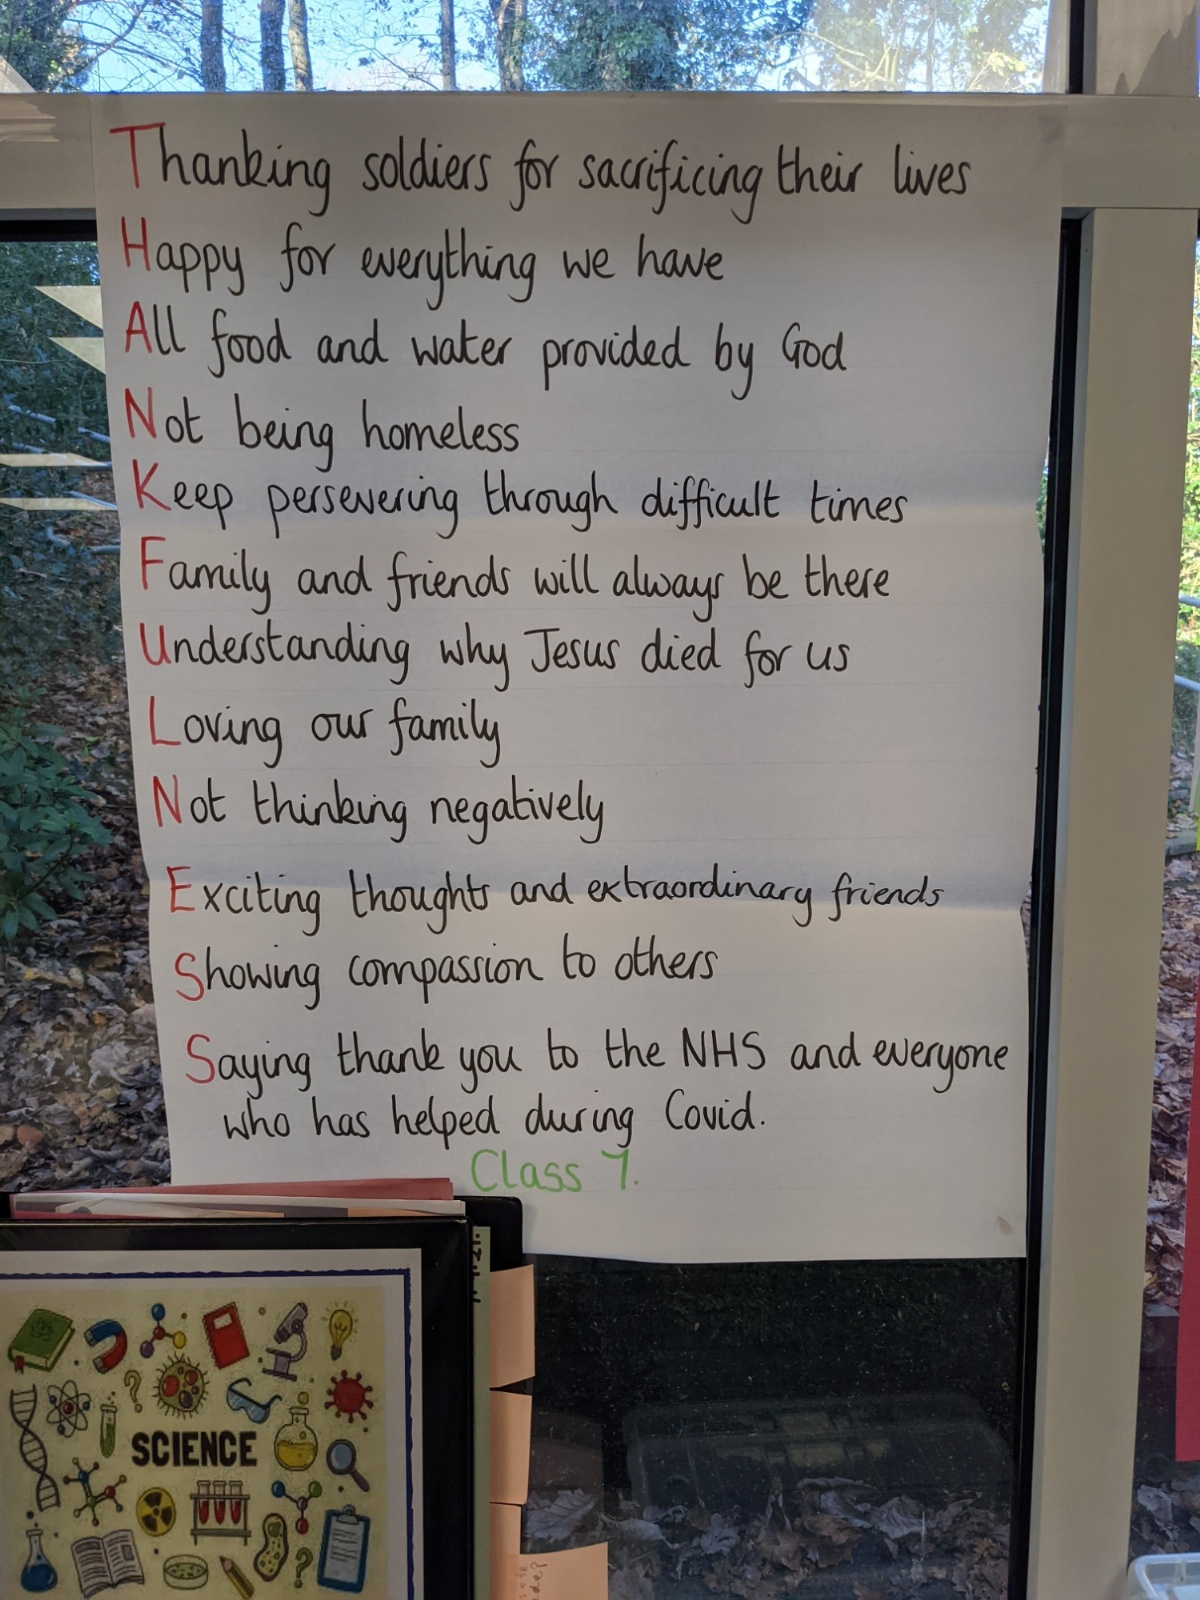 Thanking soldiers for sacrificing their lives
Happy for everything we have
All food and water provided by God
Not being homeless
Keep persevering through difficult times
Family and friends will always be there
Understanding why Jesus died for us
Loving our family
Not thinking negatively
Exciting thoughts and extraordinary friends
Showing compassion to others
Saying thank you to the NHS and everyone
who has helped during Covid.
Class 7.
SCIENCE